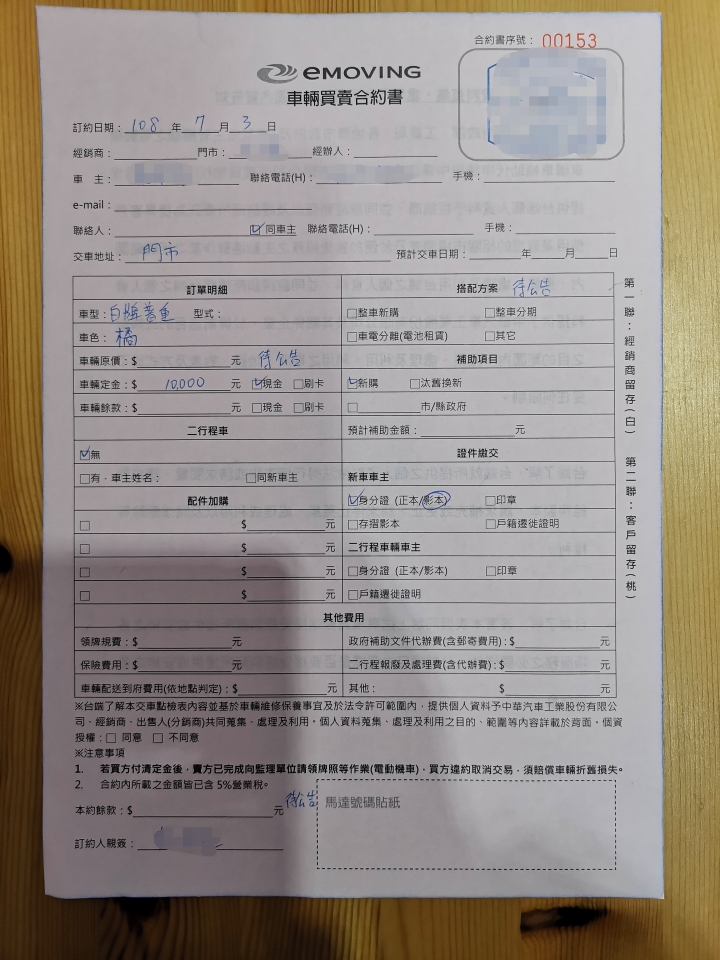 合約書序號： 00153
eMOVING
車輛買賣合約書
訂約日期：108年7月3日
經銷商： 門市： 經辦人：
車　主： 聯絡電話(H)： 手機：
e-mail：
聯絡人： ☑同車主 聯絡電話(H)： 手機：
交車地址：門市 預計交車日期： 年 月 日
訂單明細 搭配方案 待公告
車型：白牌普重 型式： □整車新購 □整車分期
車色：橘 □車電分離(電池租賃) □其它
車輛原價：$ 元 待公告 補助項目
車輛定金：$ 10,000 元 ☑現金 □刷卡 ☑新購 □汰舊換新
車輛餘款：$ 元 □現金 □刷卡 □ 市/縣政府
二行程車 預計補助金額： 元
☑無 證件繳交
□有，車主姓名： □同新車主 新車車主
配件加購 ☑身分證 (正本/影本) □印章
□ $ 元 □存摺影本 □戶籍遷徙證明
□ $ 元 二行程車輛車主
□ $ 元 □身分證 (正本/影本) □印章
□ $ 元 □戶籍遷徙證明
其他費用
領牌規費：$ 元 政府補助文件代辦費(含郵寄費用)：$ 元
保險費用：$ 元 二行程報廢及處理費(含代辦費)：$ 元
車輛配送到府費用(依地點判定)：$ 元 其他： $ 元
※台端了解本交車點檢表內容並基於車輛維修保養事宜及於法令許可範圍內，提供個人資料予中華汽車工業股份有限公
司、經銷商、出售人(分銷商)共同蒐集、處理及利用。個人資料蒐集、處理及利用之目的、範圍等內容詳載於背面。個資
授權：□ 同意 □ 不同意
※注意事項
1. 若買方付清定金後，賣方已完成向監理單位請領牌照等作業(電動機車)，買方違約取消交易，須賠償車輛折舊損失。
2. 合約內所載之金額皆已含 5%營業稅。
本約餘款：$ 元 待公告
馬達號碼貼紙
訂約人親簽：
第一聯：經銷商留存(白)
第二聯：客戶留存(桃)